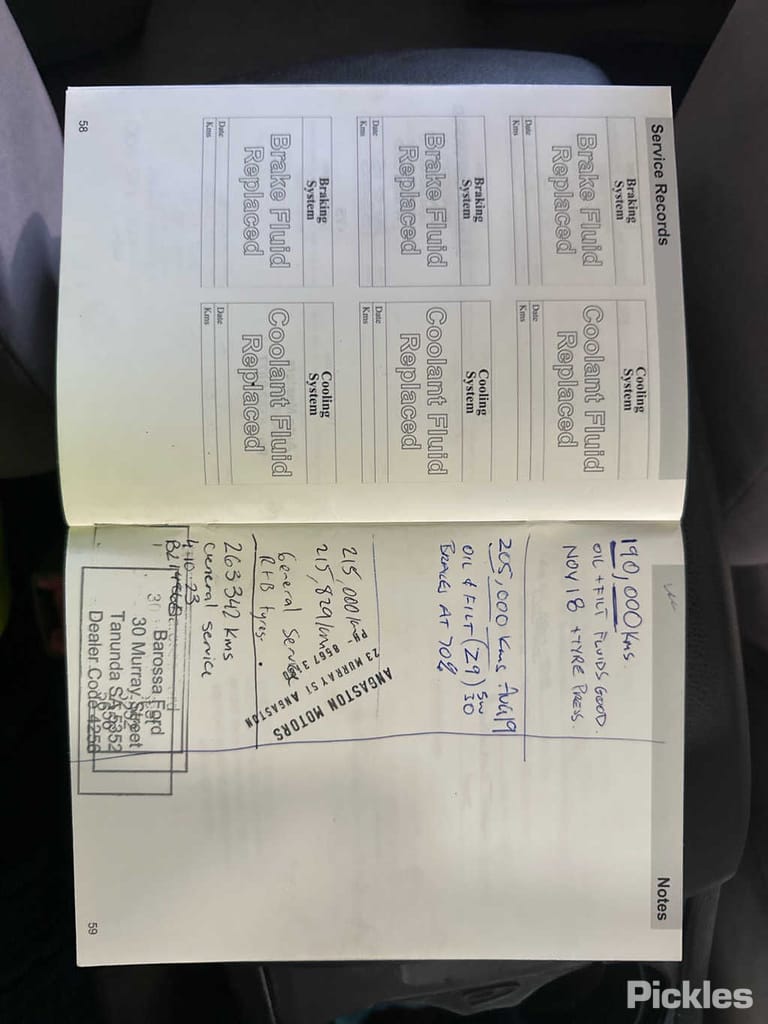 Service Records
Braking
System
Brake Fluid
Replaced
Date
Kms
Cooling
System
Coolant Fluid
Replaced
Date
Kms
Braking
System
Brake Fluid
Replaced
Date
Kms
Cooling
System
Coolant Fluid
Replaced
Date
Kms
Braking
System
Brake Fluid
Replaced
Date
Kms
Cooling
System
Coolant Fluid
Replaced
Date
Kms
58
Notes
190,000 KMS.
OIL + FILT FLUIDS GOOD.
NOV 18 + TYRE PRESS.
205,000 KMS AUG 19
OIL & FILT (Z9) 5W
30
BRAKES AT 70%
215,000
215,829 km
General Service
R+B tyres.
ANGASTON MOTORS
23 MURRAY ST ANGASTON
263342 kms
General Service
4-10-23
Barossa Ford
30 Murray Street
Tanunda SA 5352
Dealer Code 4256
59
Pickles